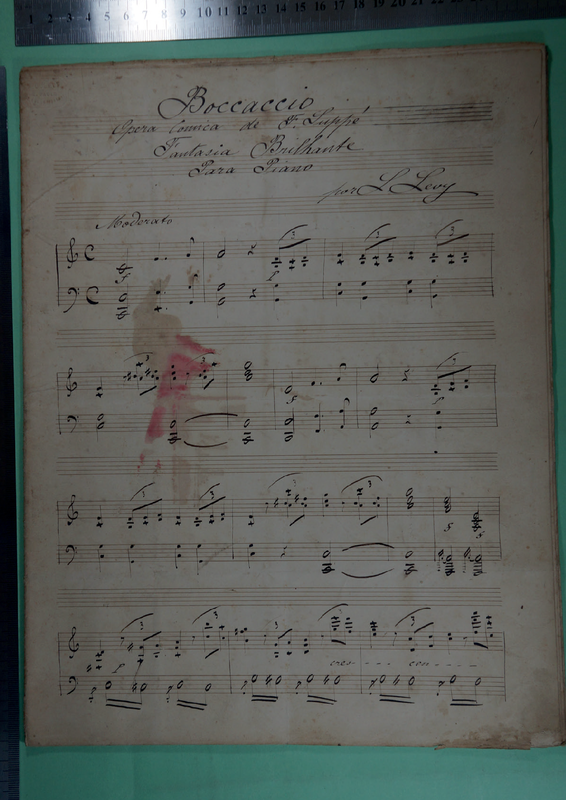 1 2 3 4 5 6 7 8 9 10 11 12 13 14 15 16 17 18 19 20 21 22 23 24
Boccaccio
Opera Comica de F. Suppé
Fantasia Brilhante
Para Piano
por L Levy
Moderato
cres - - - cen - - - -